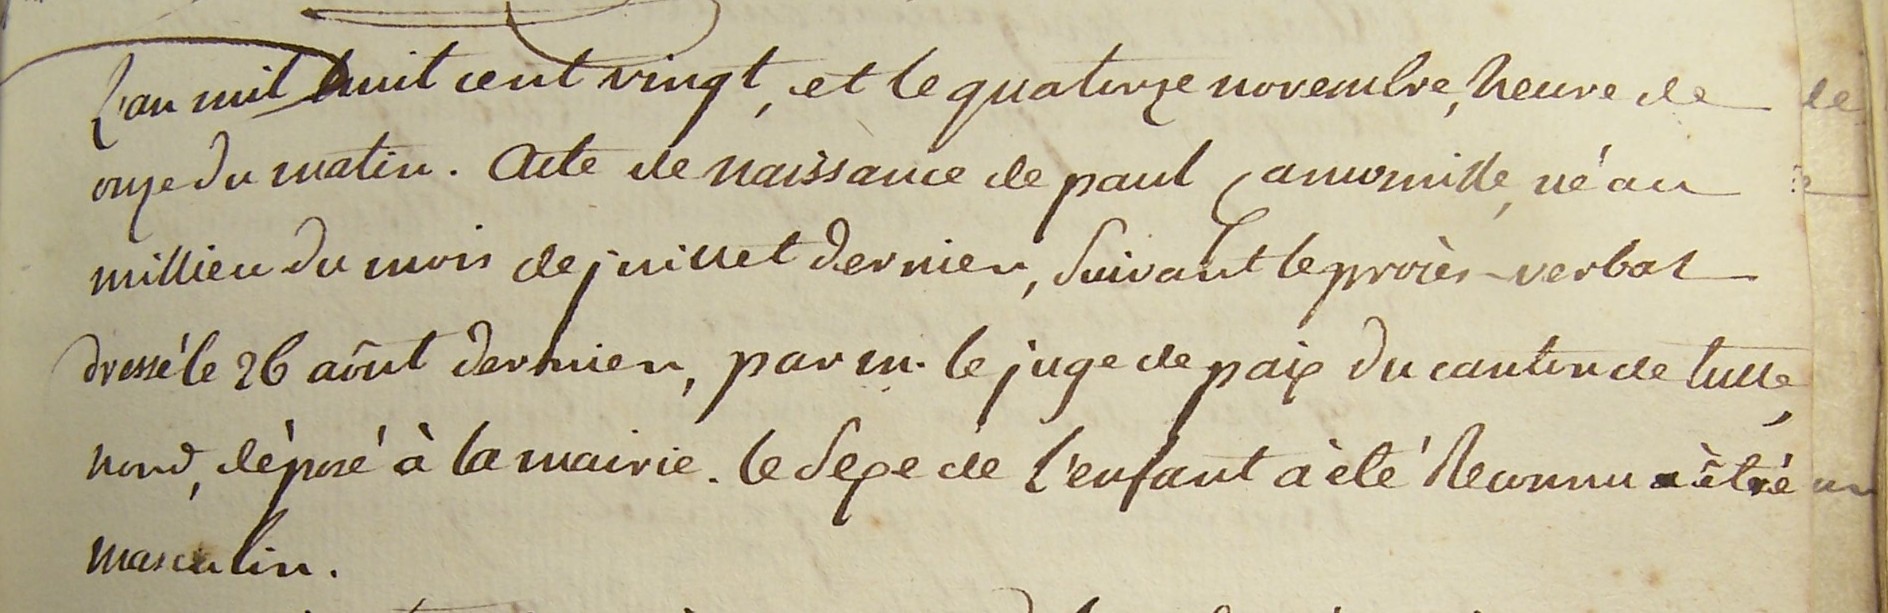 L'an mil huit cent vingt, et le quatorze novembre, heure de
onze du matin. Acte de naissance de paul Camomille, né au
millieu du mois de juillet dernier, Suivant le procès-verbal
dressé le 26 août dernier, par m. le juge de paix du canton de tulle,
nord, déposé à la mairie. le Sexe de l'enfant à été Reconnu être
masculin.